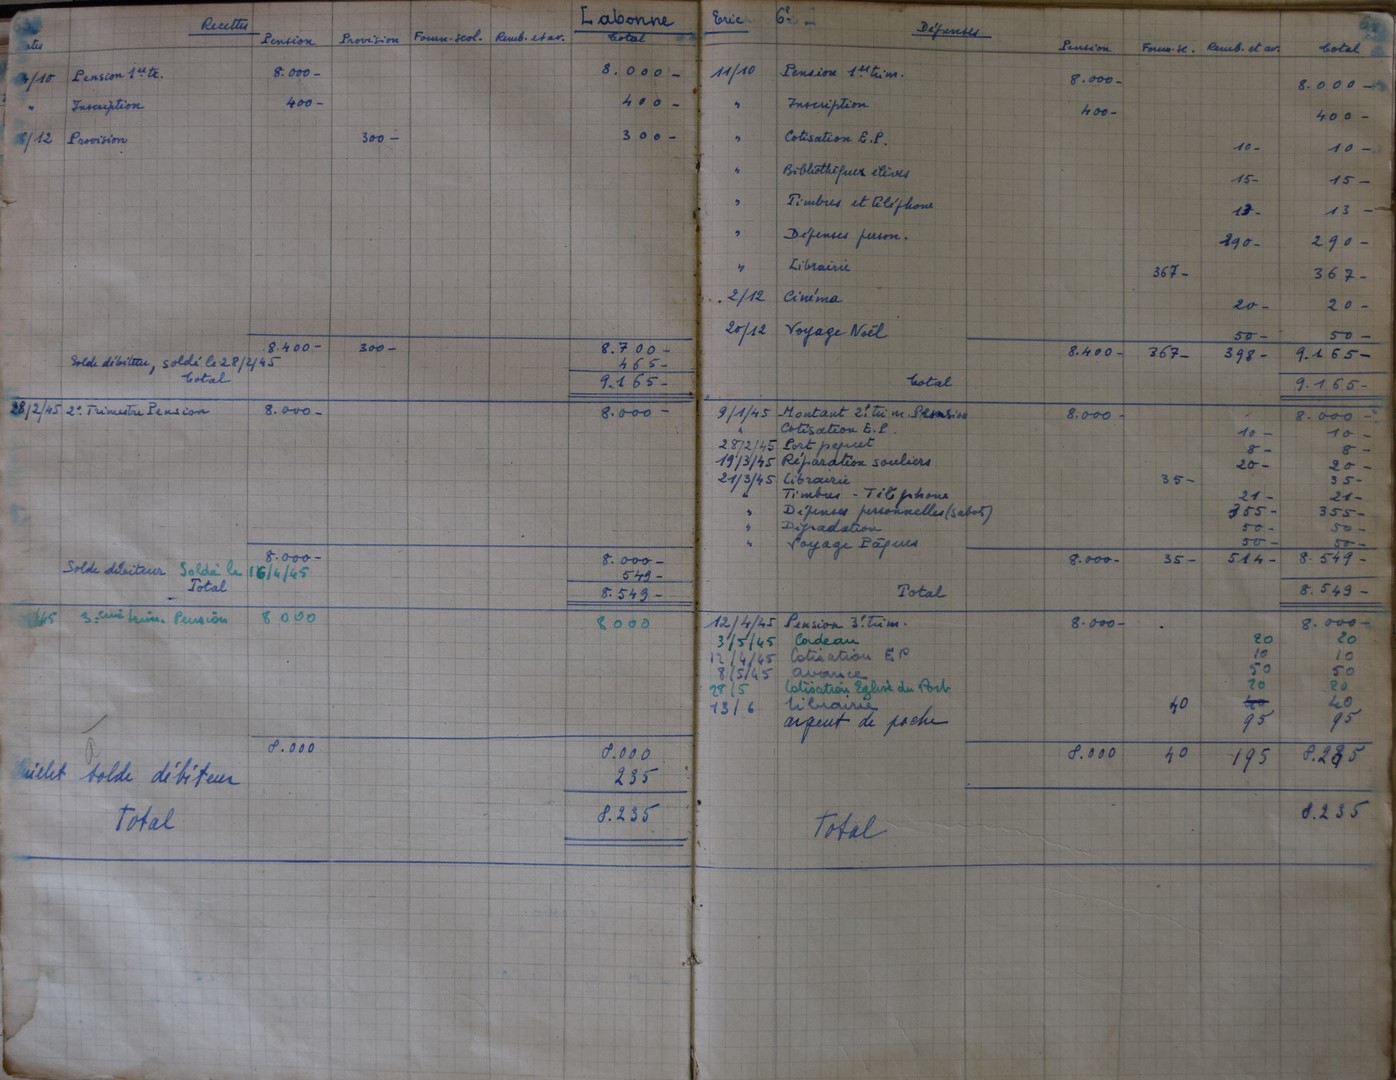 Recettes Labonne
Pension Provision Fourn-scol. Remb. et av. Total
4/10 Pension 1er tr. 8.000- 8.000-
" Inscription 400- 400-
/12 Provision 300- 300-
8.400- 300- 8.700-
Solde débiteur, soldé le 28/2/45 465-
Total 9.165-
28/2/45 2e Trimestre Pension 8.000- 8.000-
8.000- 8.000-
Solde débiteur Soldé le 16/4/45 549-
Total 8.549-
/45 3ème trim. Pension 8000 8000
8.000 8.000
Juillet Solde débiteur 235
Total 8.235
Eric 6e Dépenses
Pension Fourn-sc. Remb. et av. Total
11/10 Pension 1er trim. 8.000- 8.000-
" Inscription 400- 400-
" Cotisation E.P. 10- 10-
" Bibliothèques élèves 15- 15-
" Timbres et téléphone 13- 13-
" Dépenses person. 290- 290-
" Librairie 367- 367-
2/12 Cinéma 20- 20-
20/12 Voyage Noël 50- 50-
8.400- 367- 398- 9.165-
Total 9.165-
9/1/45 Montant 2e trim. Pension 8.000- 8.000-
" Cotisation E.P. 10- 10-
28/2/45 Port paquet 8- 8-
19/3/45 Réparation souliers 20- 20-
21/3/45 Librairie 35- 35-
" Timbres - Téléphone 21- 21-
" Dépenses personnelles (sabots) 355- 355-
" Dégradation 50- 50-
" Voyage Pâques 50- 50-
8.000- 35- 514- 8.549-
Total 8.549-
12/4/45 Pension 3e trim. 8.000- 8.000-
3/5/45 Cadeau 20 20
12/4/45 Cotisation EP 10 10
8/5/45 avance 50 50
28/5 Cotisation Eglise du 20 20
13/6 Librairie 40 40 40
argent de poche 95 95
8.000 40 195 8.235
Total 8.235